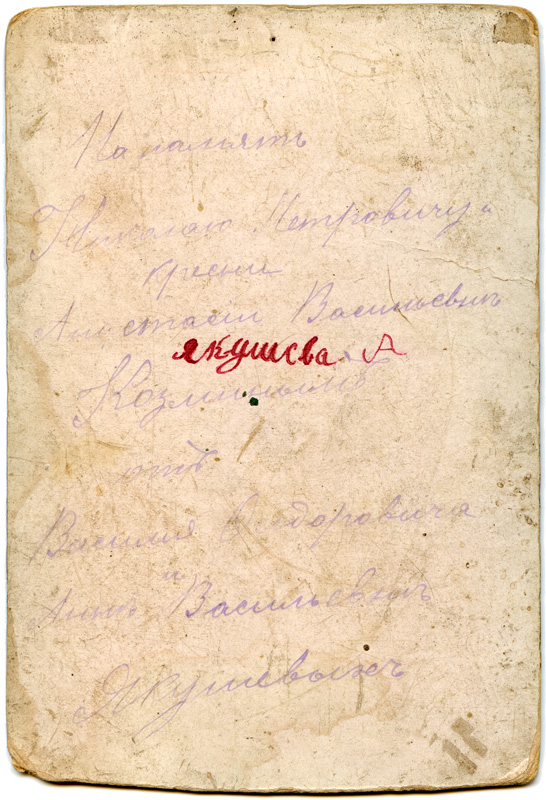 На память
Николаю Петровичу и
кресни
Анастасіи Васильевнѣ
якушева А
Козминымъ
отъ
Василия Федоровича
и
Аннѣ Васильевнѣ
Якушевыхъ